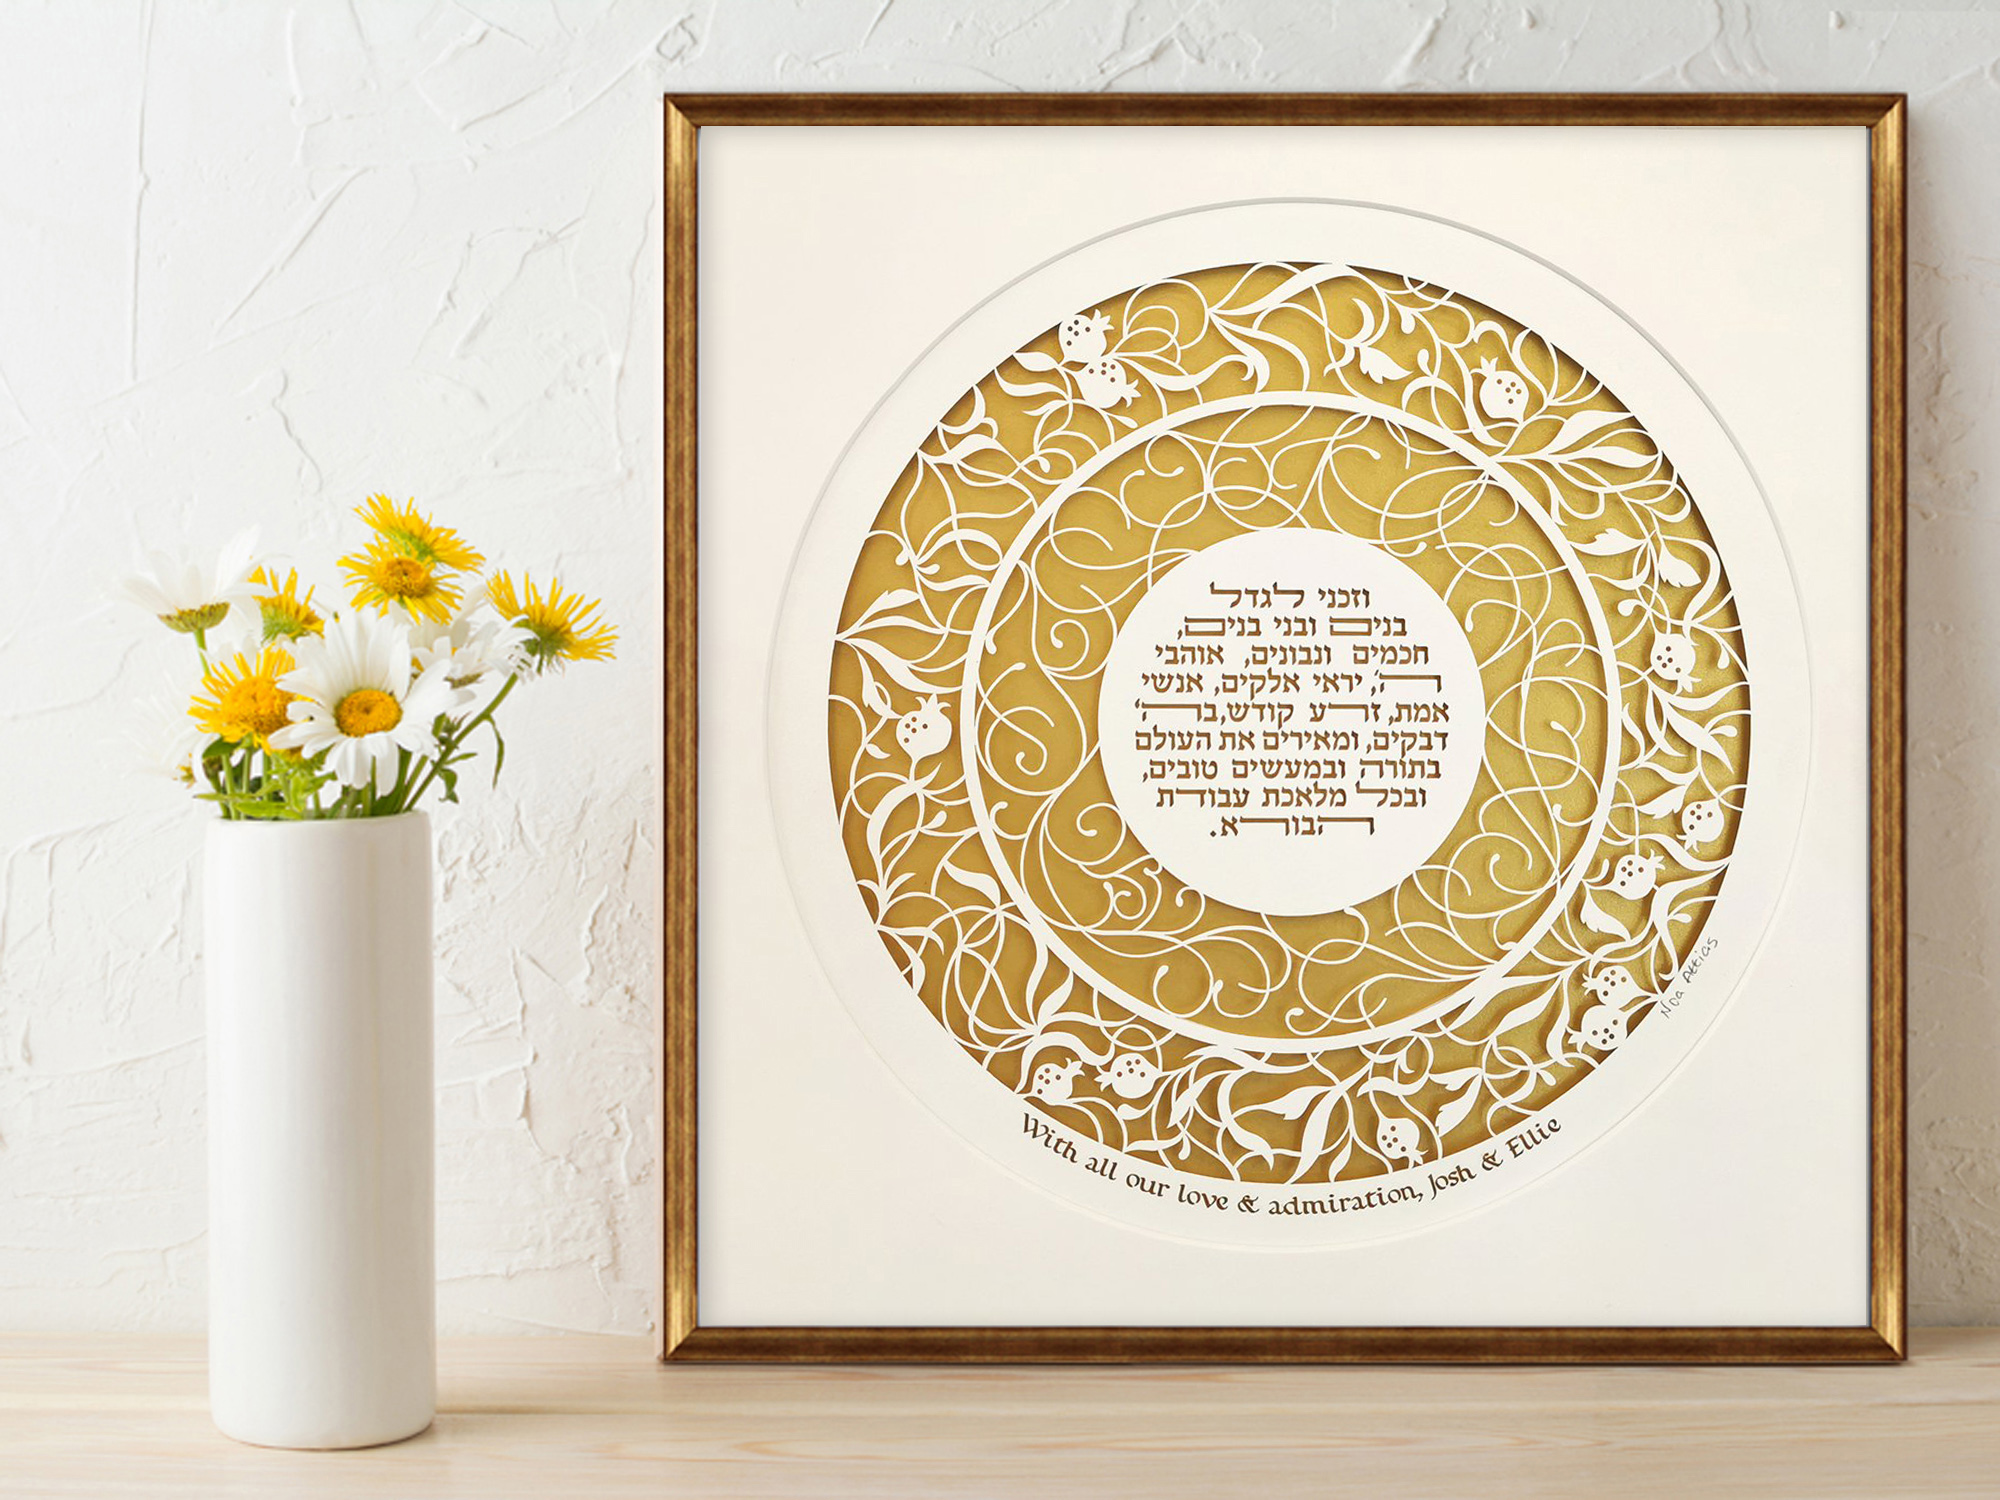 וזכני לגדל
בנים ובני בנים,
חכמים ונבונים, אוהבי
ה', יראי אלקים, אנשי
אמת, זרע קודש, בה'
דבקים, ומאירים את העולם
בתורה ובמעשים טובים,
ובכל מלאכת עבודת
הבורא.
Noa Attias
With all our love & admiration, Josh & Ellie